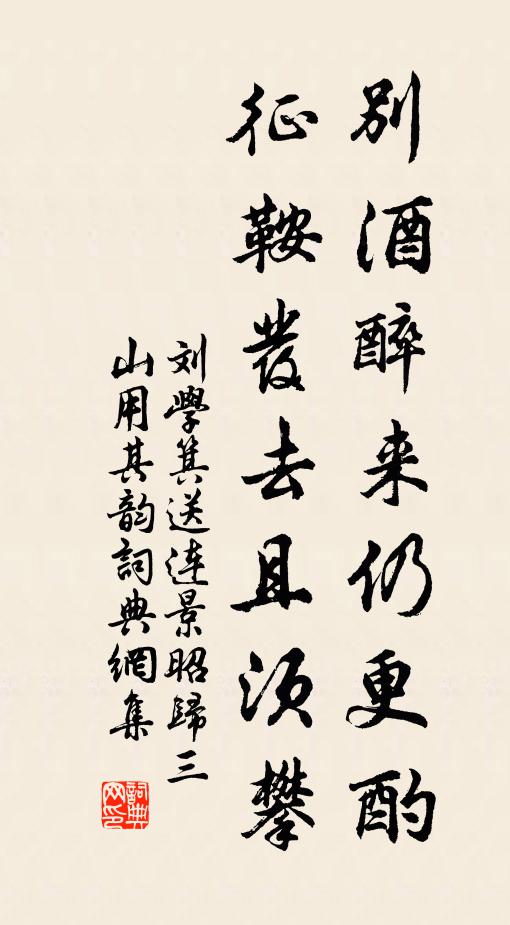 別酒醉来仍更酌
征鞍發去且須攀
刘學箕送连景昭歸三
山用其韵詞典網集
詞典
网印